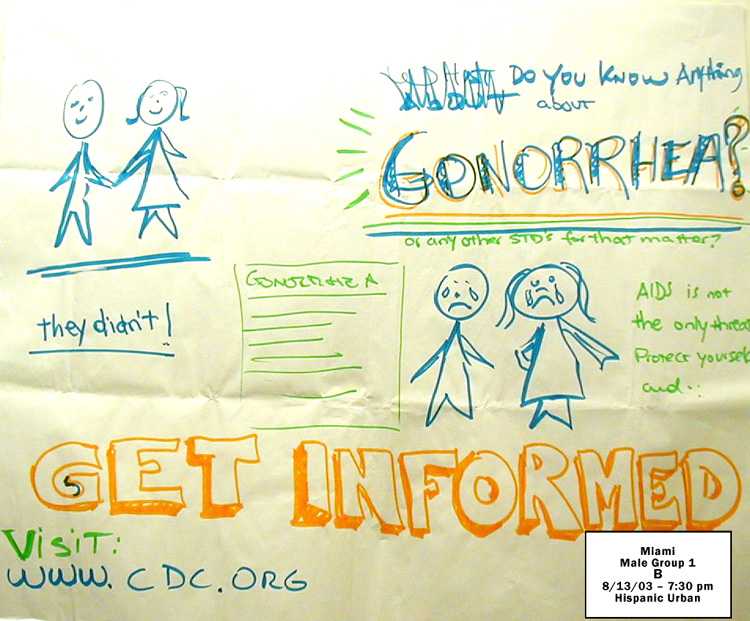 Do You Know Anything
about
GONORRHEA?
or any other STD's for that matter?
they didn't!
GONORRHEA
AIDS is not
the only threat
Protect yourself
and..
GET INFORMED
VISIT:
WWW.CDC.ORG
Miami
Male Group 1
B
8/13/03 – 7:30 pm
Hispanic Urban